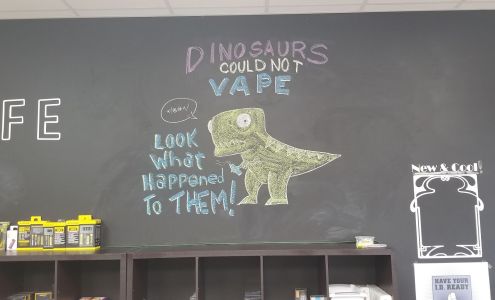 DINOSAURS
COULD NOT
VAPE
FE
LOOK
What
Happened
To THEM!
New & Cool
HAVE YOUR
I.D. READY